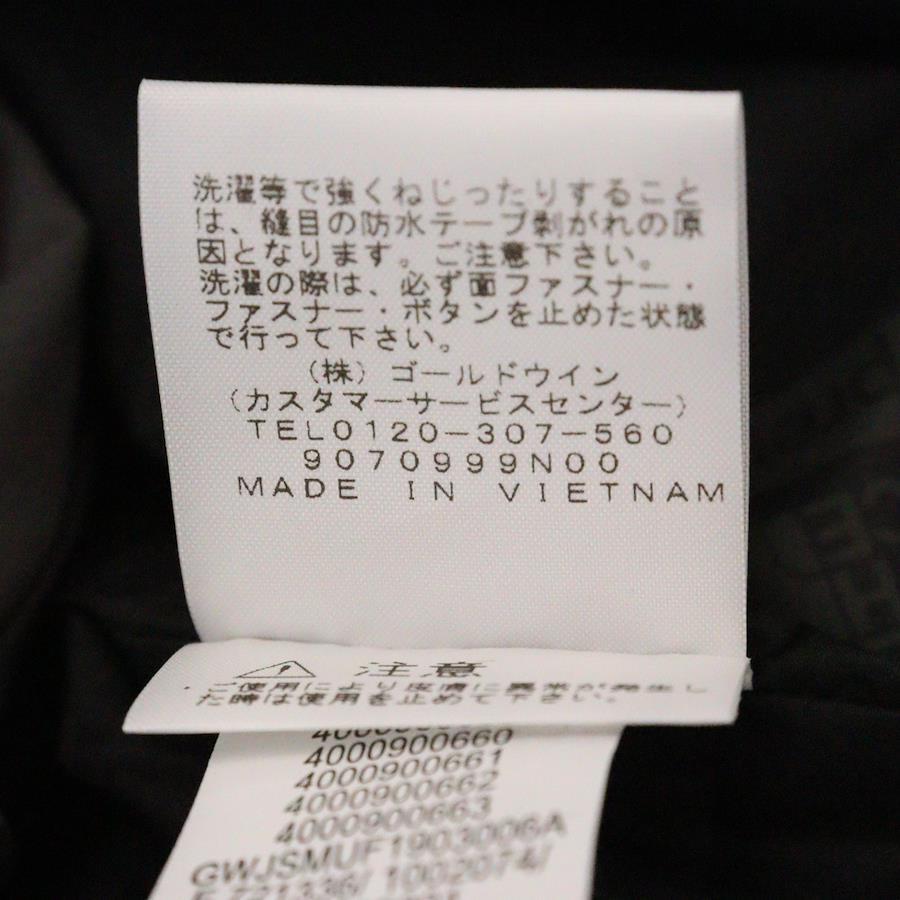 洗濯等で強くねじったりすること
は、縫目の防水テープ剥がれの原
因となります。ご注意下さい。
洗濯の際は、必ず面ファスナー・
ファスナー・ボタンを止めた状態
で行って下さい。
(株)ゴールドウイン
(カスタマーサービスセンター)
TEL0120-307-560
9070999N00
MADE IN VIETNAM
注意
ご使用により皮膚に異常が発生し
た時は使用を止めて下さい。
4000900660
4000900661
4000900662
4000900663
GWJSMUF1903006A
F 721336/ 1002074/